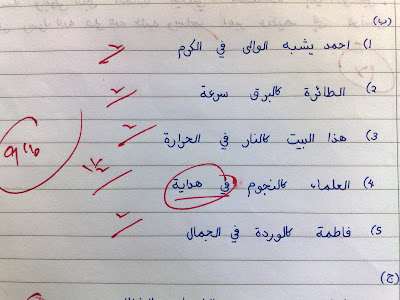 (ب)
1) احمد يشبه الوالى في الكرم
2) الطائرة كالبرق سرعة
3) هذا البيت كالنار في الحرارة
1½
4) العلماء كالنجوم في هداية
5) فاطمة كالوردة في الجمال
(ج)